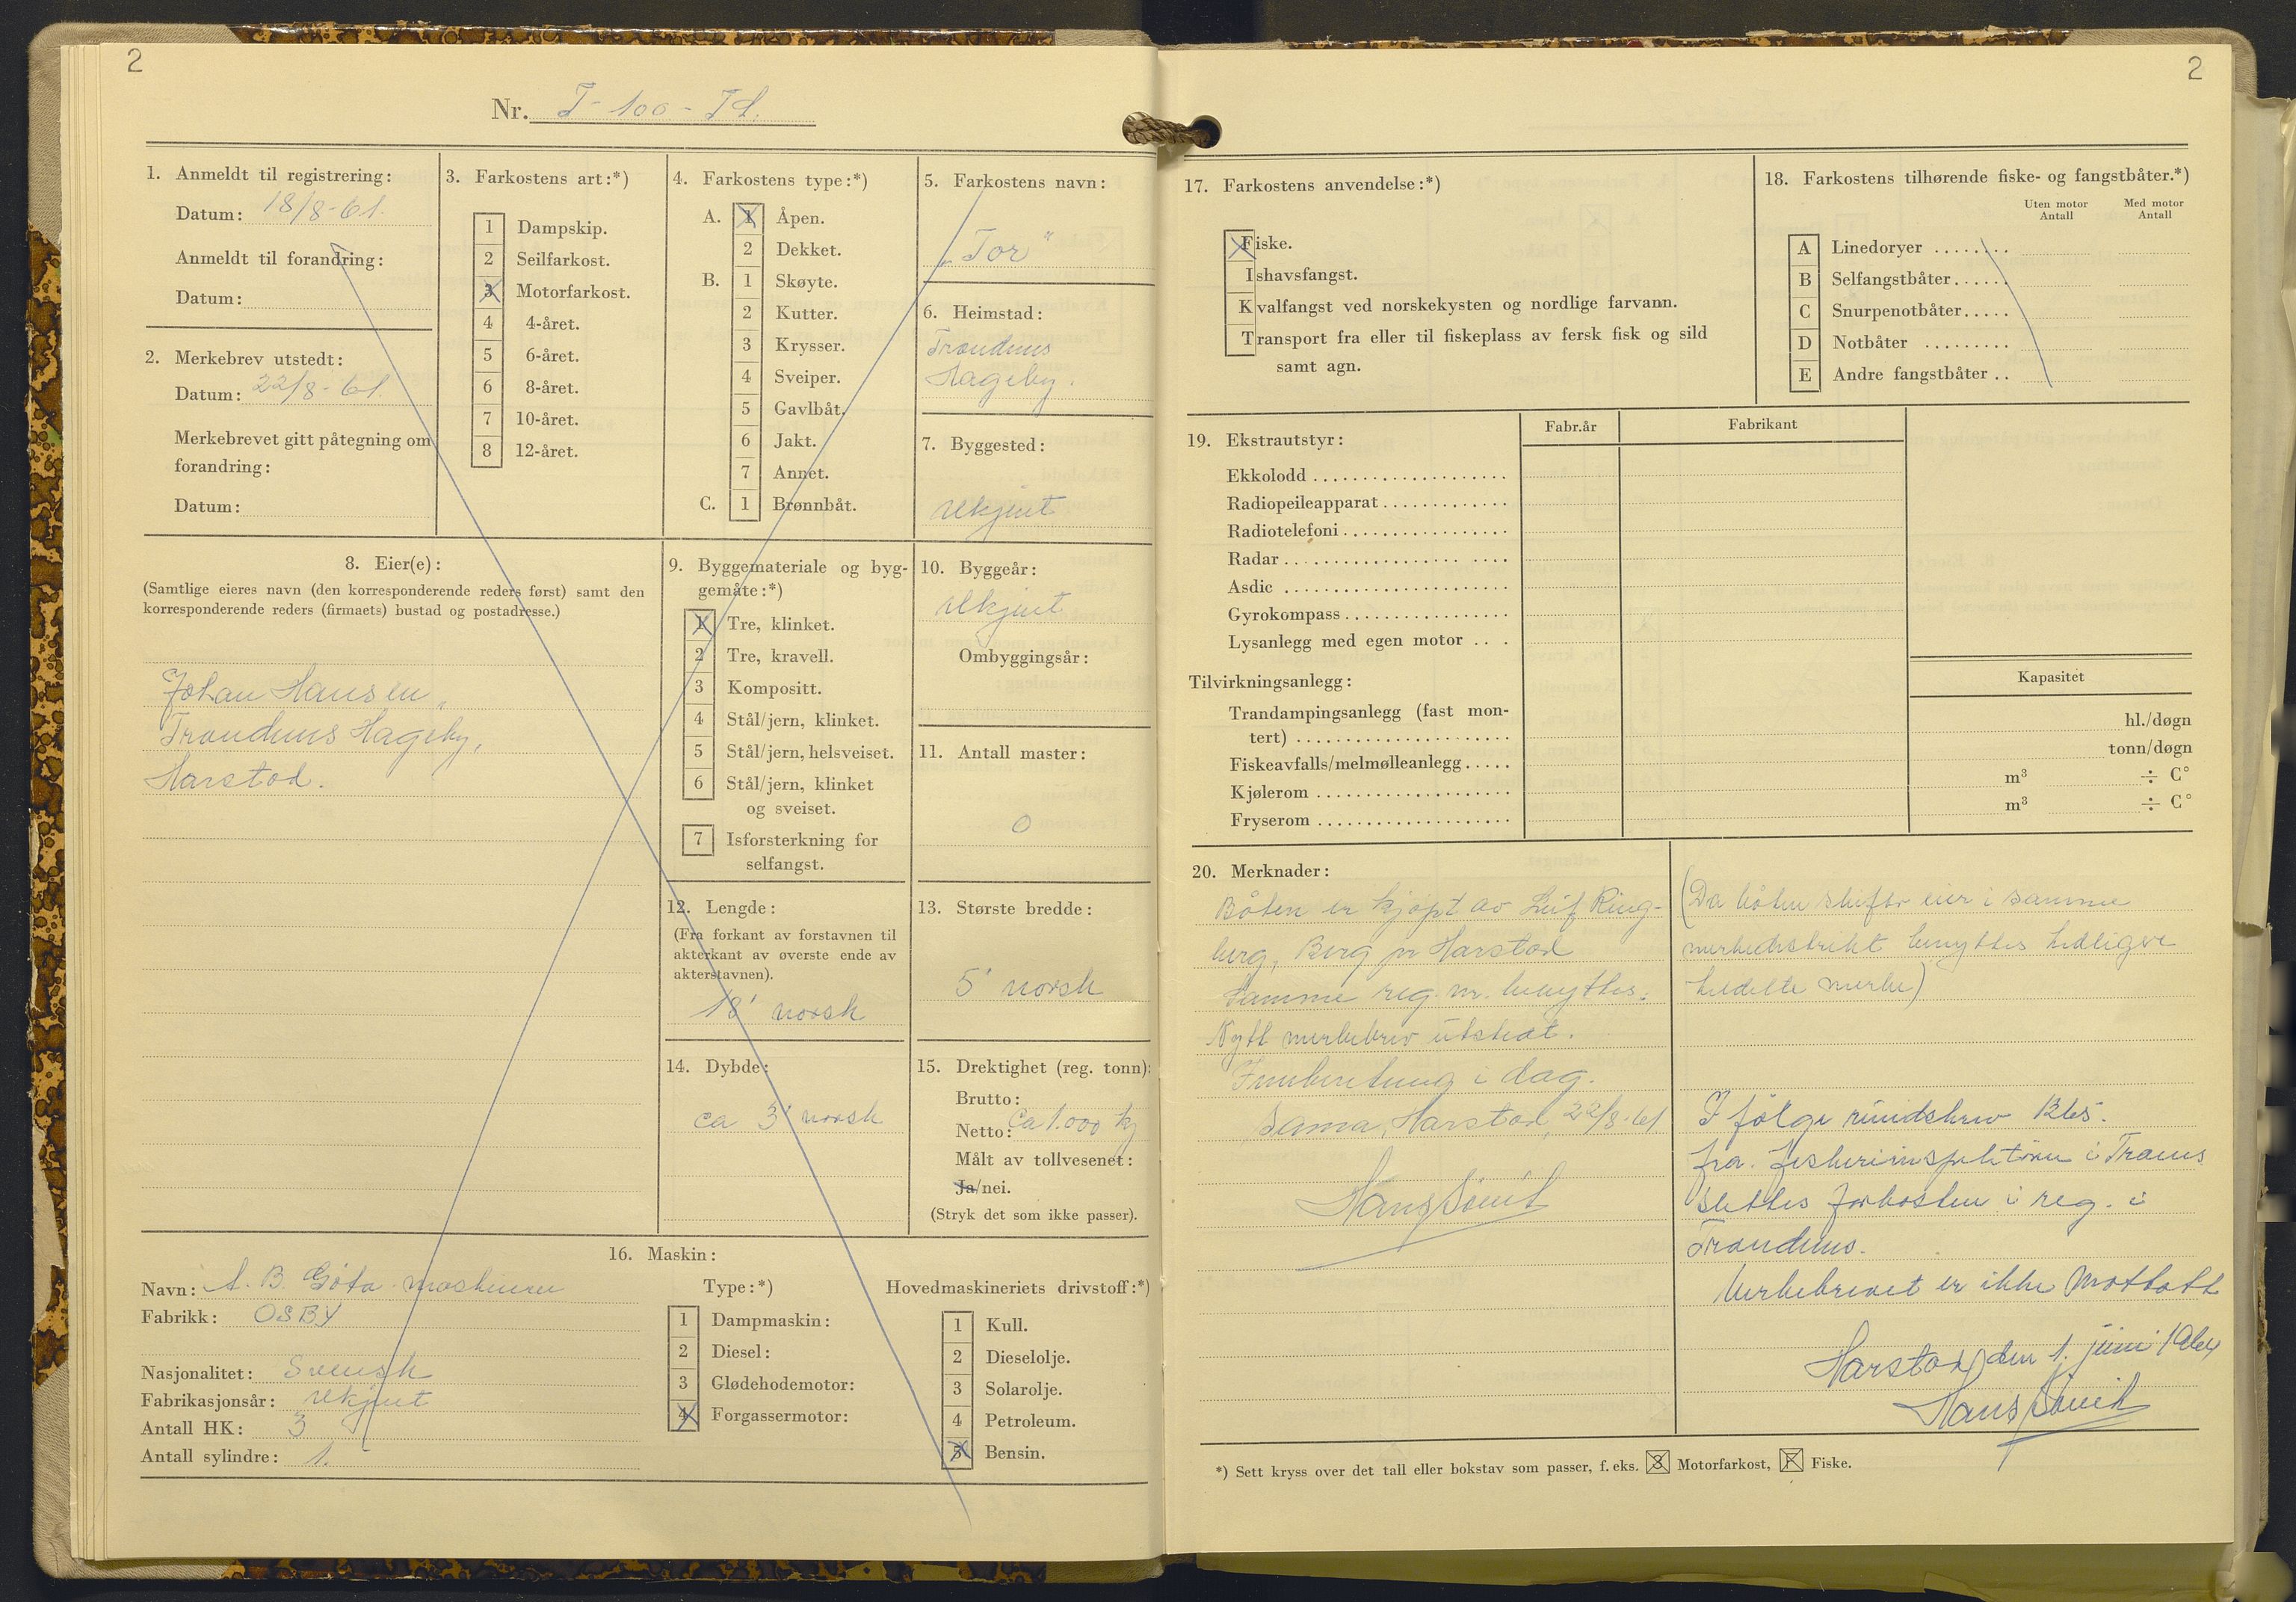 2
Nr. T-100-Td.
1. Anmeldt til registrering:
Datum: 18/8-61.
Anmeldt til forandring:
Datum:
2. Merkebrev utstedt:
Datum: 22/8-61.
Merkebrevet gitt påtegning om
forandring:
Datum:
3. Farkostens art:*)
1 Dampskip.
2 Seilfarkost.
3 Motorfarkost.
4 4-året.
5 6-året.
6 8-året.
7 10-året.
8 12-året.
4. Farkostens type:*)
A. 1 Åpen.
2 Dekket.
B. 1 Skøyte.
2 Kutter.
3 Krysser.
4 Sveiper.
5 Gavlbåt.
6 Jakt.
7 Annet.
C. 1 Brønnbåt.
5. Farkostens navn:
„Tor"
6. Heimstad:
Trondenes
Hageby.
7. Byggested:
ukjent
8. Eier(e):
(Samtlige eieres navn (den korresponderende reders først) samt den
korresponderende reders (firmaets) bustad og postadresse.)
Johan Hansen,
Trondenes Hageby,
Harstad.
9. Byggemateriale og byg-
gemåte:*)
1 Tre, klinket.
2 Tre, kravell.
3 Kompositt.
4 Stål/jern, klinket.
5 Stål/jern, helsveiset.
6 Stål/jern, klinket
og sveiset.
7 Isforsterkning for
selfangst.
10. Byggeår:
ukjent
Ombyggingsår:
11. Antall master:
0
12. Lengde:
(Fra forkant av forstavnen til
akterkant av øverste ende av
akterstavnen).
18' norsk
13. Største bredde:
5' norsk
14. Dybde:
ca 3' norsk
15. Drektighet (reg. tonn):
Brutto:
Netto: Ca 1.000 kg
Målt av tollvesenet:
Ja/nei.
(Stryk det som ikke passer).
16. Maskin:
Navn: A. B. Göta maskiner
Fabrikk: OSBY
Nasjonalitet: Svensk
Fabrikasjonsår: ukjent
Antall HK: 3
Antall sylindre: 1.
Type:*)
1 Dampmaskin:
2 Diesel:
3 Glødehodemotor:
4 Forgassermotor:
Hovedmaskineriets drivstoff:*)
1 Kull.
2 Dieselolje.
3 Solarolje.
4 Petroleum.
5 Bensin.
2
17. Farkostens anvendelse:*)
Fiske.
Ishavsfangst.
Kvalfangst ved norskekysten og nordlige farvann.
Transport fra eller til fiskeplass av fersk fisk og sild
samt agn.
18. Farkostens tilhørende fiske- og fangstbåter.*)
Uten motor Antall
Med motor Antall
A Linedoryer
B Selfangstbåter
C Snurpenotbåter
D Notbåter
E Andre fangstbåter
19. Ekstrautstyr:
Fabr.år
Fabrikant
Ekkolodd
Radiopeileapparat
Radiotelefoni
Radar
Asdic
Gyrokompass
Lysanlegg med egen motor
Tilvirkningsanlegg:
Kapasitet
Trandampingsanlegg (fast mon-
tert) hl./døgn
Fiskeavfalls/melmølleanlegg tonn/døgn
Kjølerom m³ ÷ C°
Fryserom m³ ÷ C°
20. Merknader:
Båten er kjøpt av Leif Ring-
berg, Berg pr Harstad
Samme reg. nr. benyttes.
Nytt merkebrev utstedt.
Innberetning i dag.
Sama, Harstad, 22/8-61
Hans
(Da båten skifter eier i samme
merkedistrikt benyttes tidligere
tildelte merke)
I følge rundskriv 1265.
fra. fiskeriinspektøren i Troms
slettes farkosten i reg. i
Trondenes.
Merkebrevet er ikke mottatt
Harstad, den 1. juni 1964
Hans
*) Sett kryss over det tall eller bokstav som passer, f. eks. 3 Motorfarkost, F Fiske.